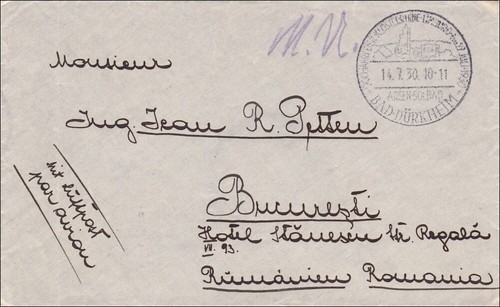 M. N.
14.7.30.10-11
ARSEN-SOLBAD
BAD-DÜRKHEIM
Monsieur
Ing. Jean R. Petten
mit Luftpost
par avion
București
Hotel Stănescu Str. Regală
VII. 93.
Rumänien Romania